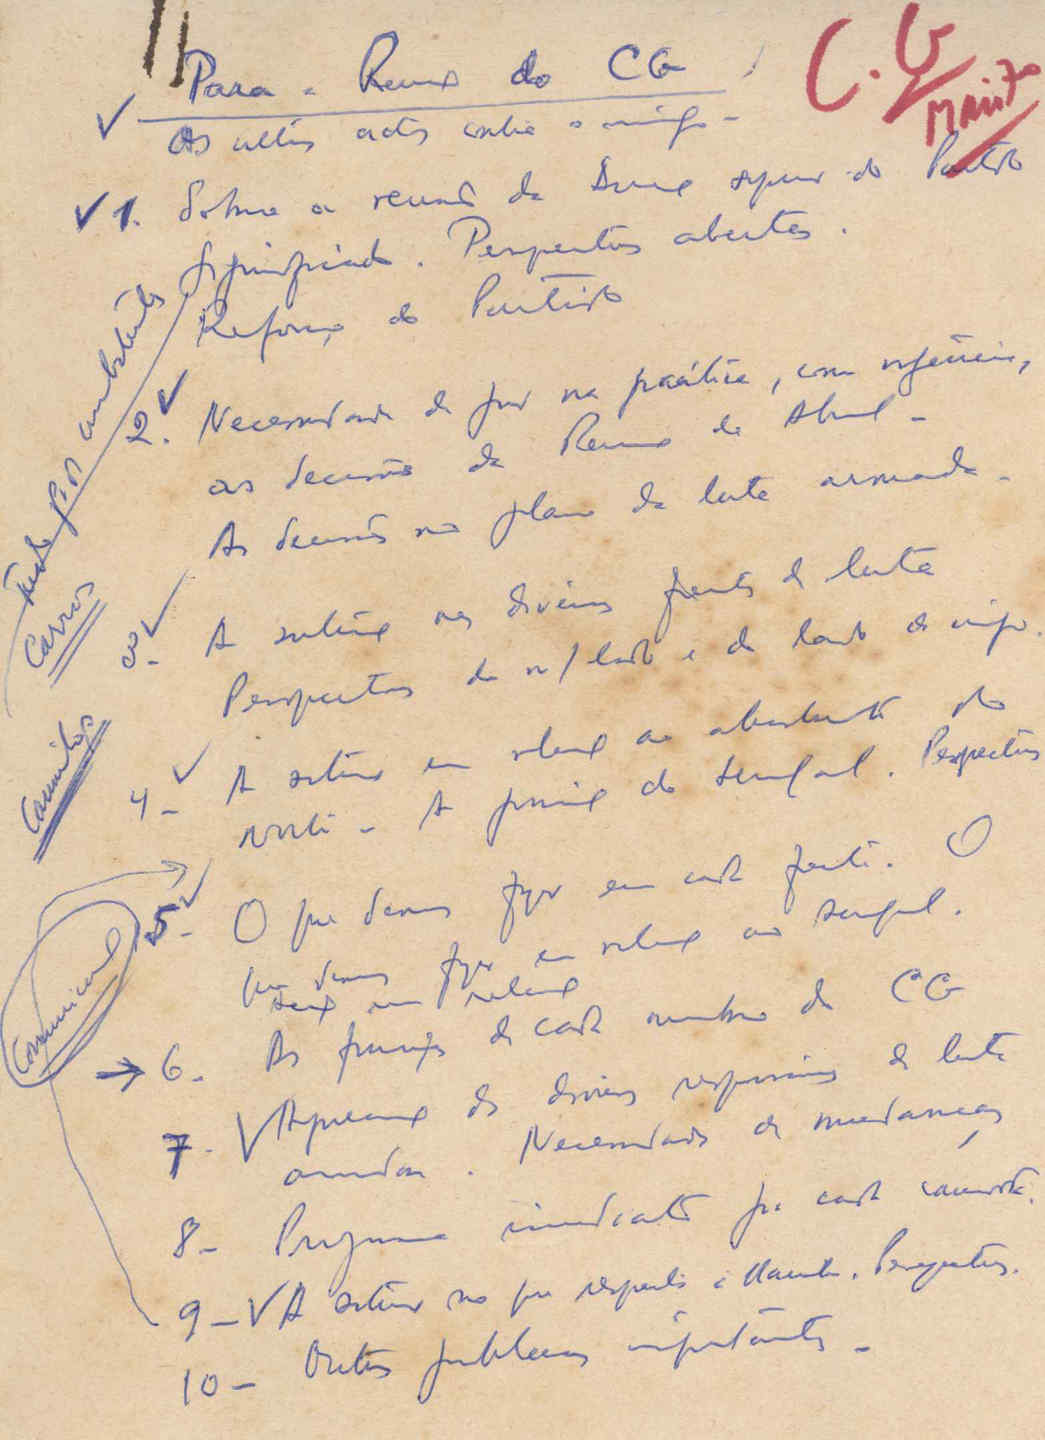 C.G
Maio 70
Para a Reunião do CG
Os últimos actos contra o inimigo -
1. Sobre a reunião da Direcção superior do Partido
Significado. Perspectivas abertas.
Reforço do Partido
2. Necessidade de pôr na prática, com urgência,
as decisões da Reunião de Abril -
As decisões no plano da luta armada -
3 - A situação nas diversas frentes de luta
Perspectivas do n/ lado e do lado do inimigo.
4 - A situação em relação ao abastecimento do
Norte - A posição do Senegal. Perspectivas
5 - O que devemos fazer em cada frente. O
que devemos fazer em relação ao Senegal.
em relação
6 - As funções de cada membro do CG
7 - Apreciação dos diversos responsáveis da luta
armada. Necessidade de mudanças
8 - Programa imediato para cada camarada.
9 - A situação no que respeita a Perspectivas.
10 - Outros problemas importantes -
Carros
Camiões
Comunicação